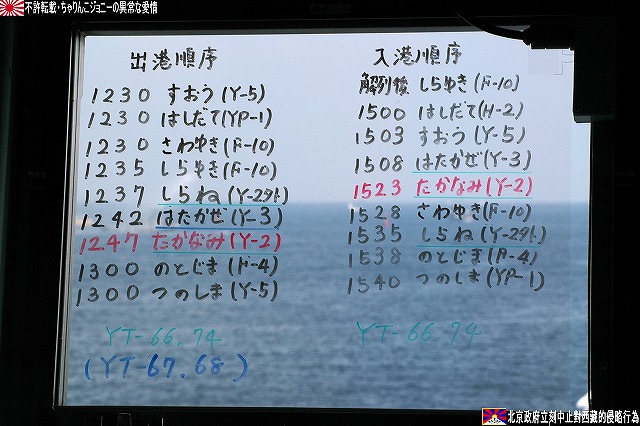 不許転載・ちゃりんこジョニーの異常な愛情
出港順序
1230 すおう(Y-5)
1230 はしだて(YP-1)
1230 さわゆき(F-10)
1235 しらゆき(F-10)
1237 しらね(Y-2外)
1242 はたかぜ(Y-3)
1247 たかなみ(Y-2)
1300 のとじま(F-4)
1300 つのしま(Y-5)
YT-66.74
(YT-67.68)
入港順序
解列後 しらゆき(F-10)
1500 はしだて(H-2)
1503 すおう(Y-5)
1508 はたかぜ(Y-3)
1523 たかなみ(Y-2)
1528 さわゆき(F-10)
1535 しらね(Y-2外)
1538 のとじま(F-4)
1540 つのしま(YP-1)
YT-66.74
北京政府立刻中止對西藏的侵略行為